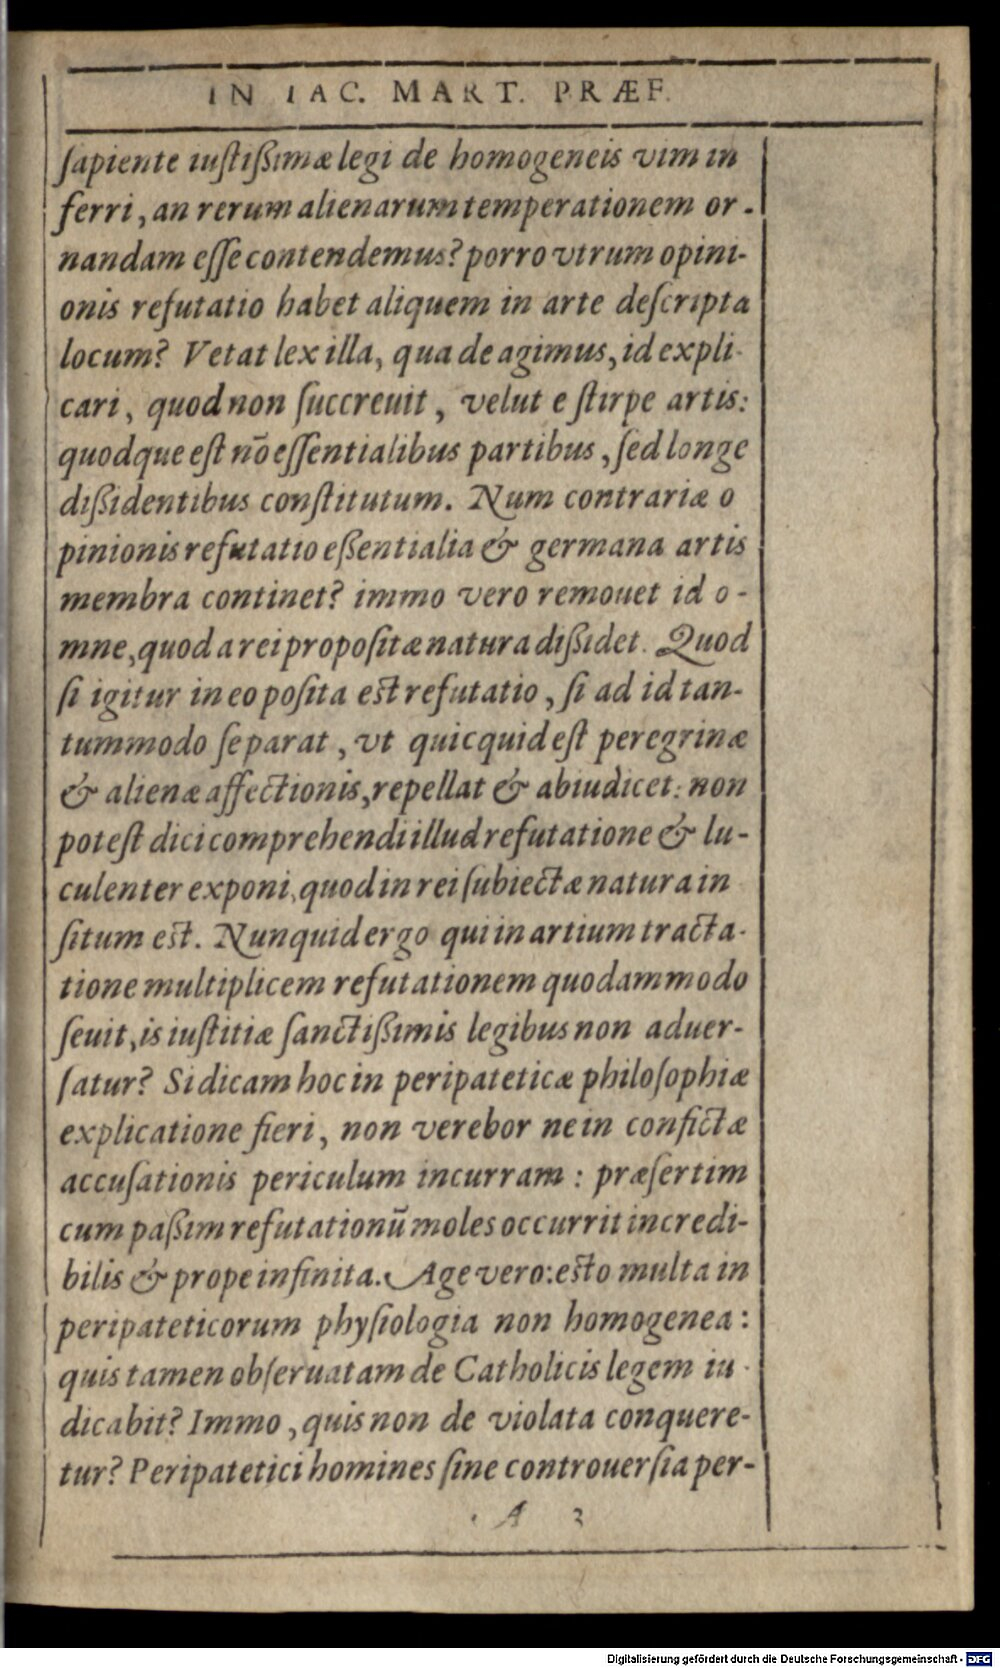 IN IAC. MART. PRÆF.
ſapiente iuſtißimæ legi de homogeneis vim in
ferri, an rerum alienarum temperationem or-
nandam eſſe contendemus? porro vtrum opini-
onis refutatio habet aliquem in arte deſcripta
locum? Vetat lex illa, qua de agimus, id expli-
cari, quod non ſuccreuit, velut e ſtirpe artis:
quodque eſt nō eſſentialibus partibus, ſed longe
dißidentibus conſtitutum. Num contrariæ o
pinionis refutatio eßentialia & germana artis
membra continet? immo vero remouet id o-
mne, quod a rei propoſitæ natura dißidet. Quod
ſi igitur in eo poſita est refutatio, ſi ad id tan-
tummodo ſeparat, vt quicquid eſt peregrinæ
& alienæ affectionis, repellat & abiudicet: non
poteſt dici comprehendi illud refutatione & lu-
culenter exponi, quod in rei ſubiectæ natura in
ſitum est. Nunquid ergo qui in artium tracta-
tione multiplicem refutationem quodammodo
ſeuit, is iuſtitiæ ſanctißimis legibus non aduer-
ſatur? Si dicam hoc in peripateticæ philoſophiæ
explicatione fieri, non verebor ne in confictæ
accuſationis periculum incurram: præſertim
cum paßim refutationū moles occurrit incredi-
bilis & prope infinita. Age vero: esto multa in
peripateticorum phyſiologia non homogenea:
quis tamen obſeruatam de Catholicis legem iu-
dicabit? Immo, quis non de violata conquere-
tur? Peripatetici homines ſine controuerſia per-
A 3
Digitalisierung gefördert durch die Deutsche Forschungsgemeinschaft - DFG